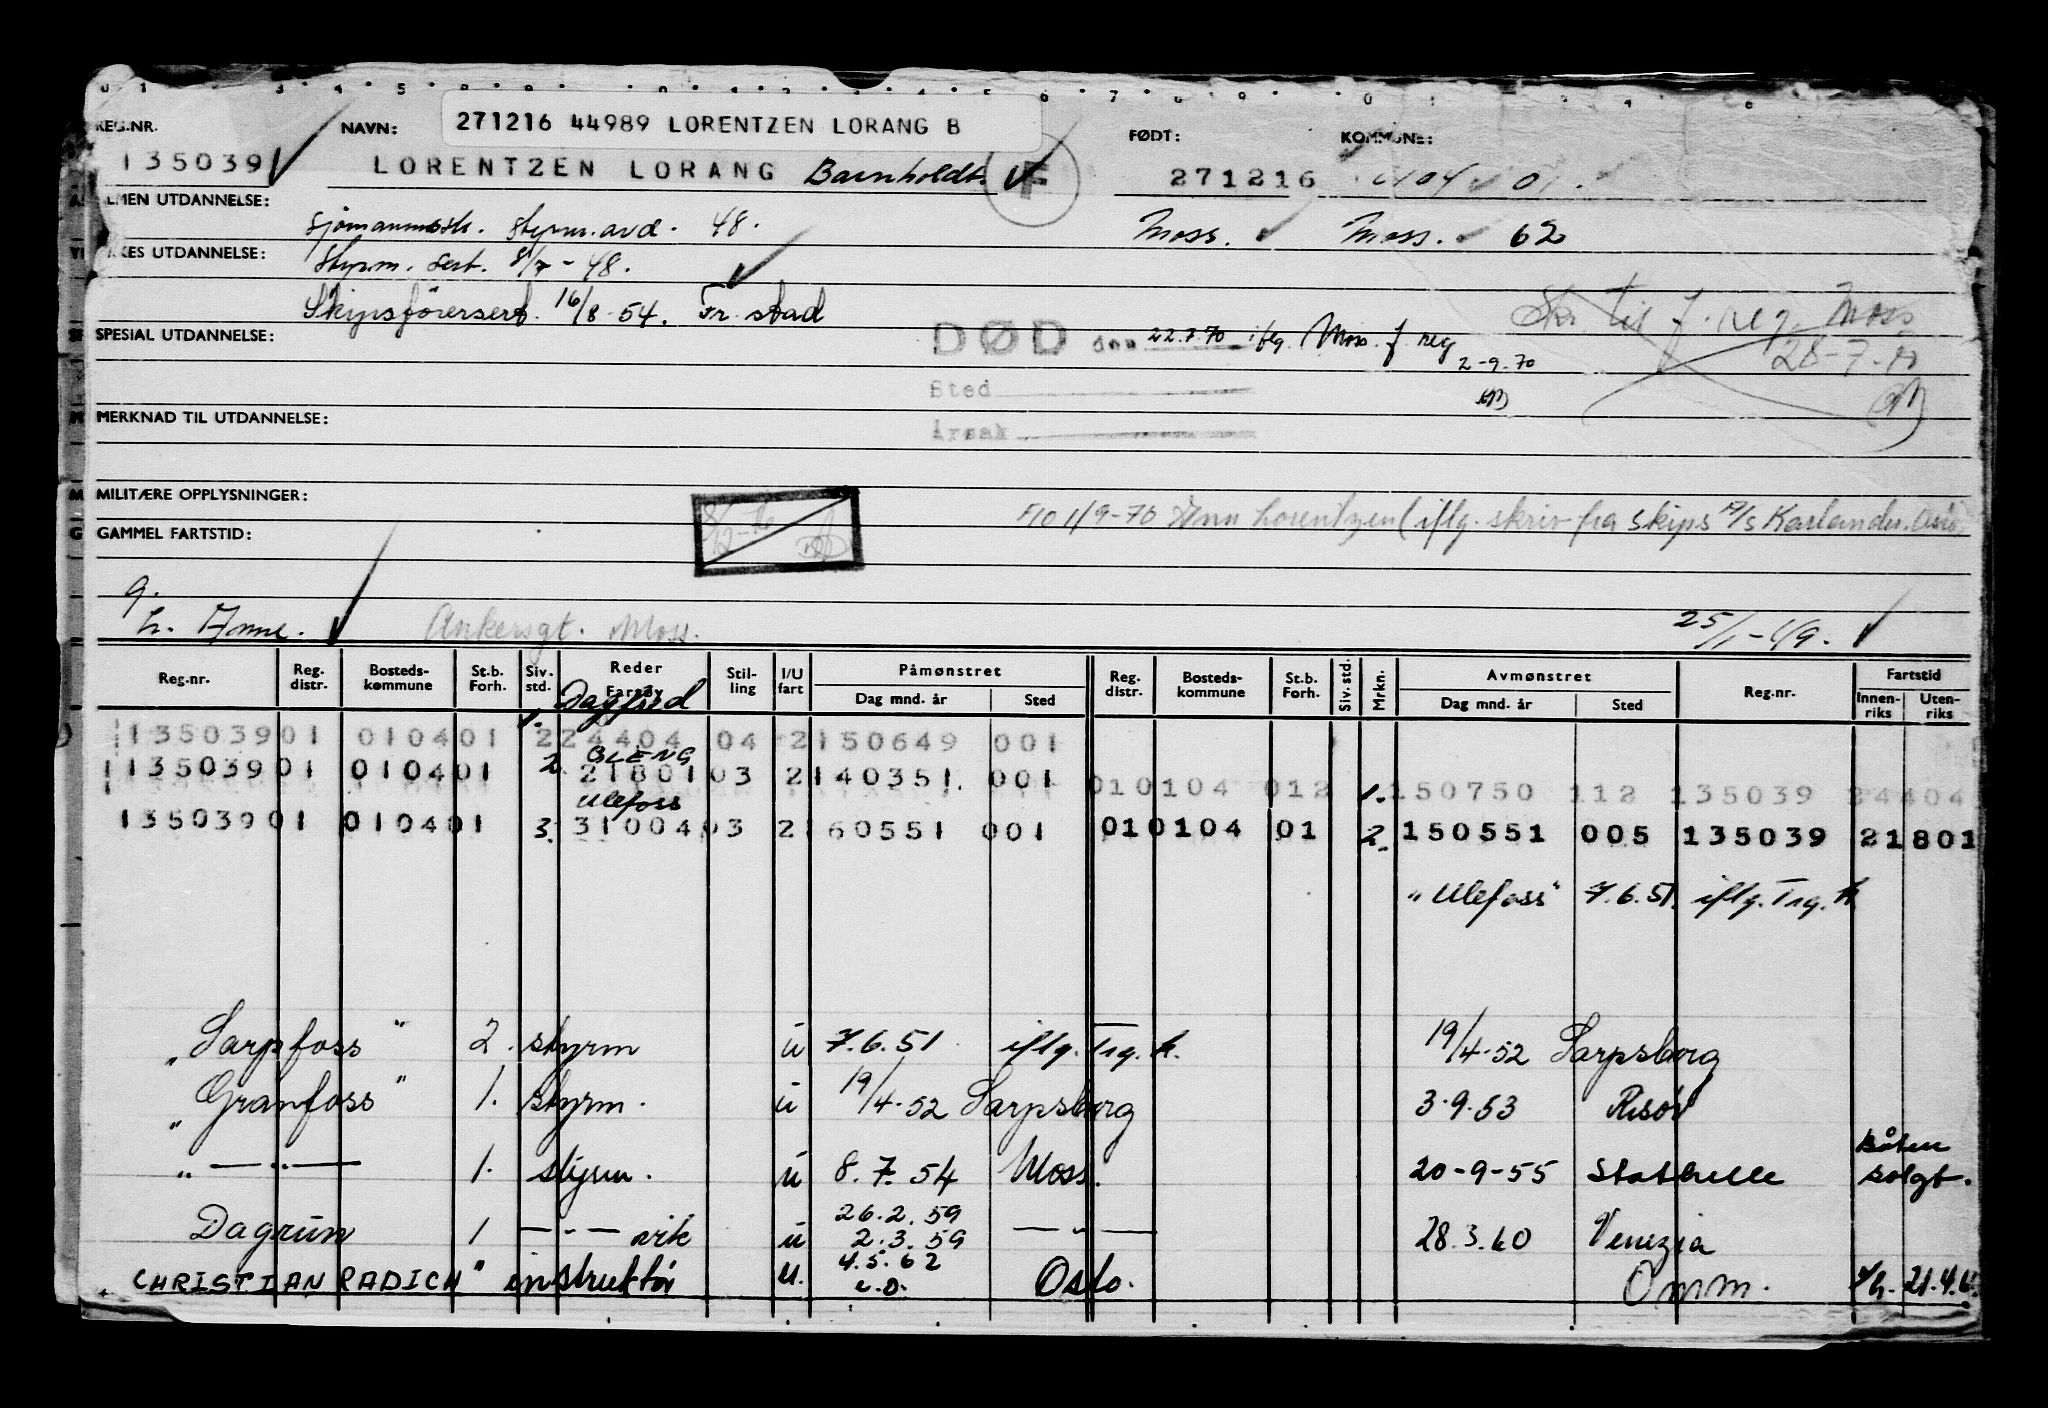 271216 44989 LORENTZEN LORANG B
REG.NR. NAVN: FØDT: KOMMUNE:
135039 LORENTZEN LORANG F 271216 01
ALMEN UTDANNELSE: styrm. avd. 48. Moss. Moss. 62
YRKES UTDANNELSE: Styrm. sert. 8/7-48.
Skipsförersert. 16/8-54. Fr. stad Skr. til f. reg. Moss
SPESIAL UTDANNELSE: DØD den 22.7.70 iflg. Moss. f. reg 28-7-70
2-9.70
Sted
MERKNAD TIL UTDANNELSE: Årsak
MILITÆRE OPPLYSNINGER:
1/9-70 Lorentzen (iflg. skriv fra Skips A/S Karlander. Oslo
GAMMEL FARTSTID:
g.
Ankersgt. Moss. 25/1-
Reg.nr. Reg. distr. Bosteds-kommune St.b. Forh. Siv. std. Reder Fartøy Stil-ling I/U fart Påmønstret Dag mnd. år Sted Reg. distr. Bosteds-kommune St.b. Forh. Siv. std. Mrkn. Avmønstret Dag mnd. år Sted Reg.nr. Fartstid Innen-riks Uten-riks
1. Dagfred
135039 01 0104 01 2 24404 04 2 150649 001
2. BLENG
135039 01 0104 01 21801 03 2 140351. 001 01 0104 012 1. 150750 112 135039 24404
Ulefoss
135039 01 0104 01 3. 31004 03 2 160551 001 01 0104 01 2. 150551 005 135039 21801
"Ulefoss" 7.6.51. iflg. Trg. k
"Sarpfoss" 2. styrm u 7.6.51 iflg. Trg. k. 19/4-52 Sarpsborg
"Granfoss" 1. styrm. u 19/4-52 Sarpsborg 3.9.53 Risör
" — " — 1. styrm. u 8.7.54 Moss. 20-9-55 Stathelle Båten solgt.
Dagrun 1 — " — vik u 26.2.59 2.3.59 — " — 28.3.60 Venezia
"CHRISTIAN RADICH" instruktör u. 4.5.62 u.o. Oslo. Omm.